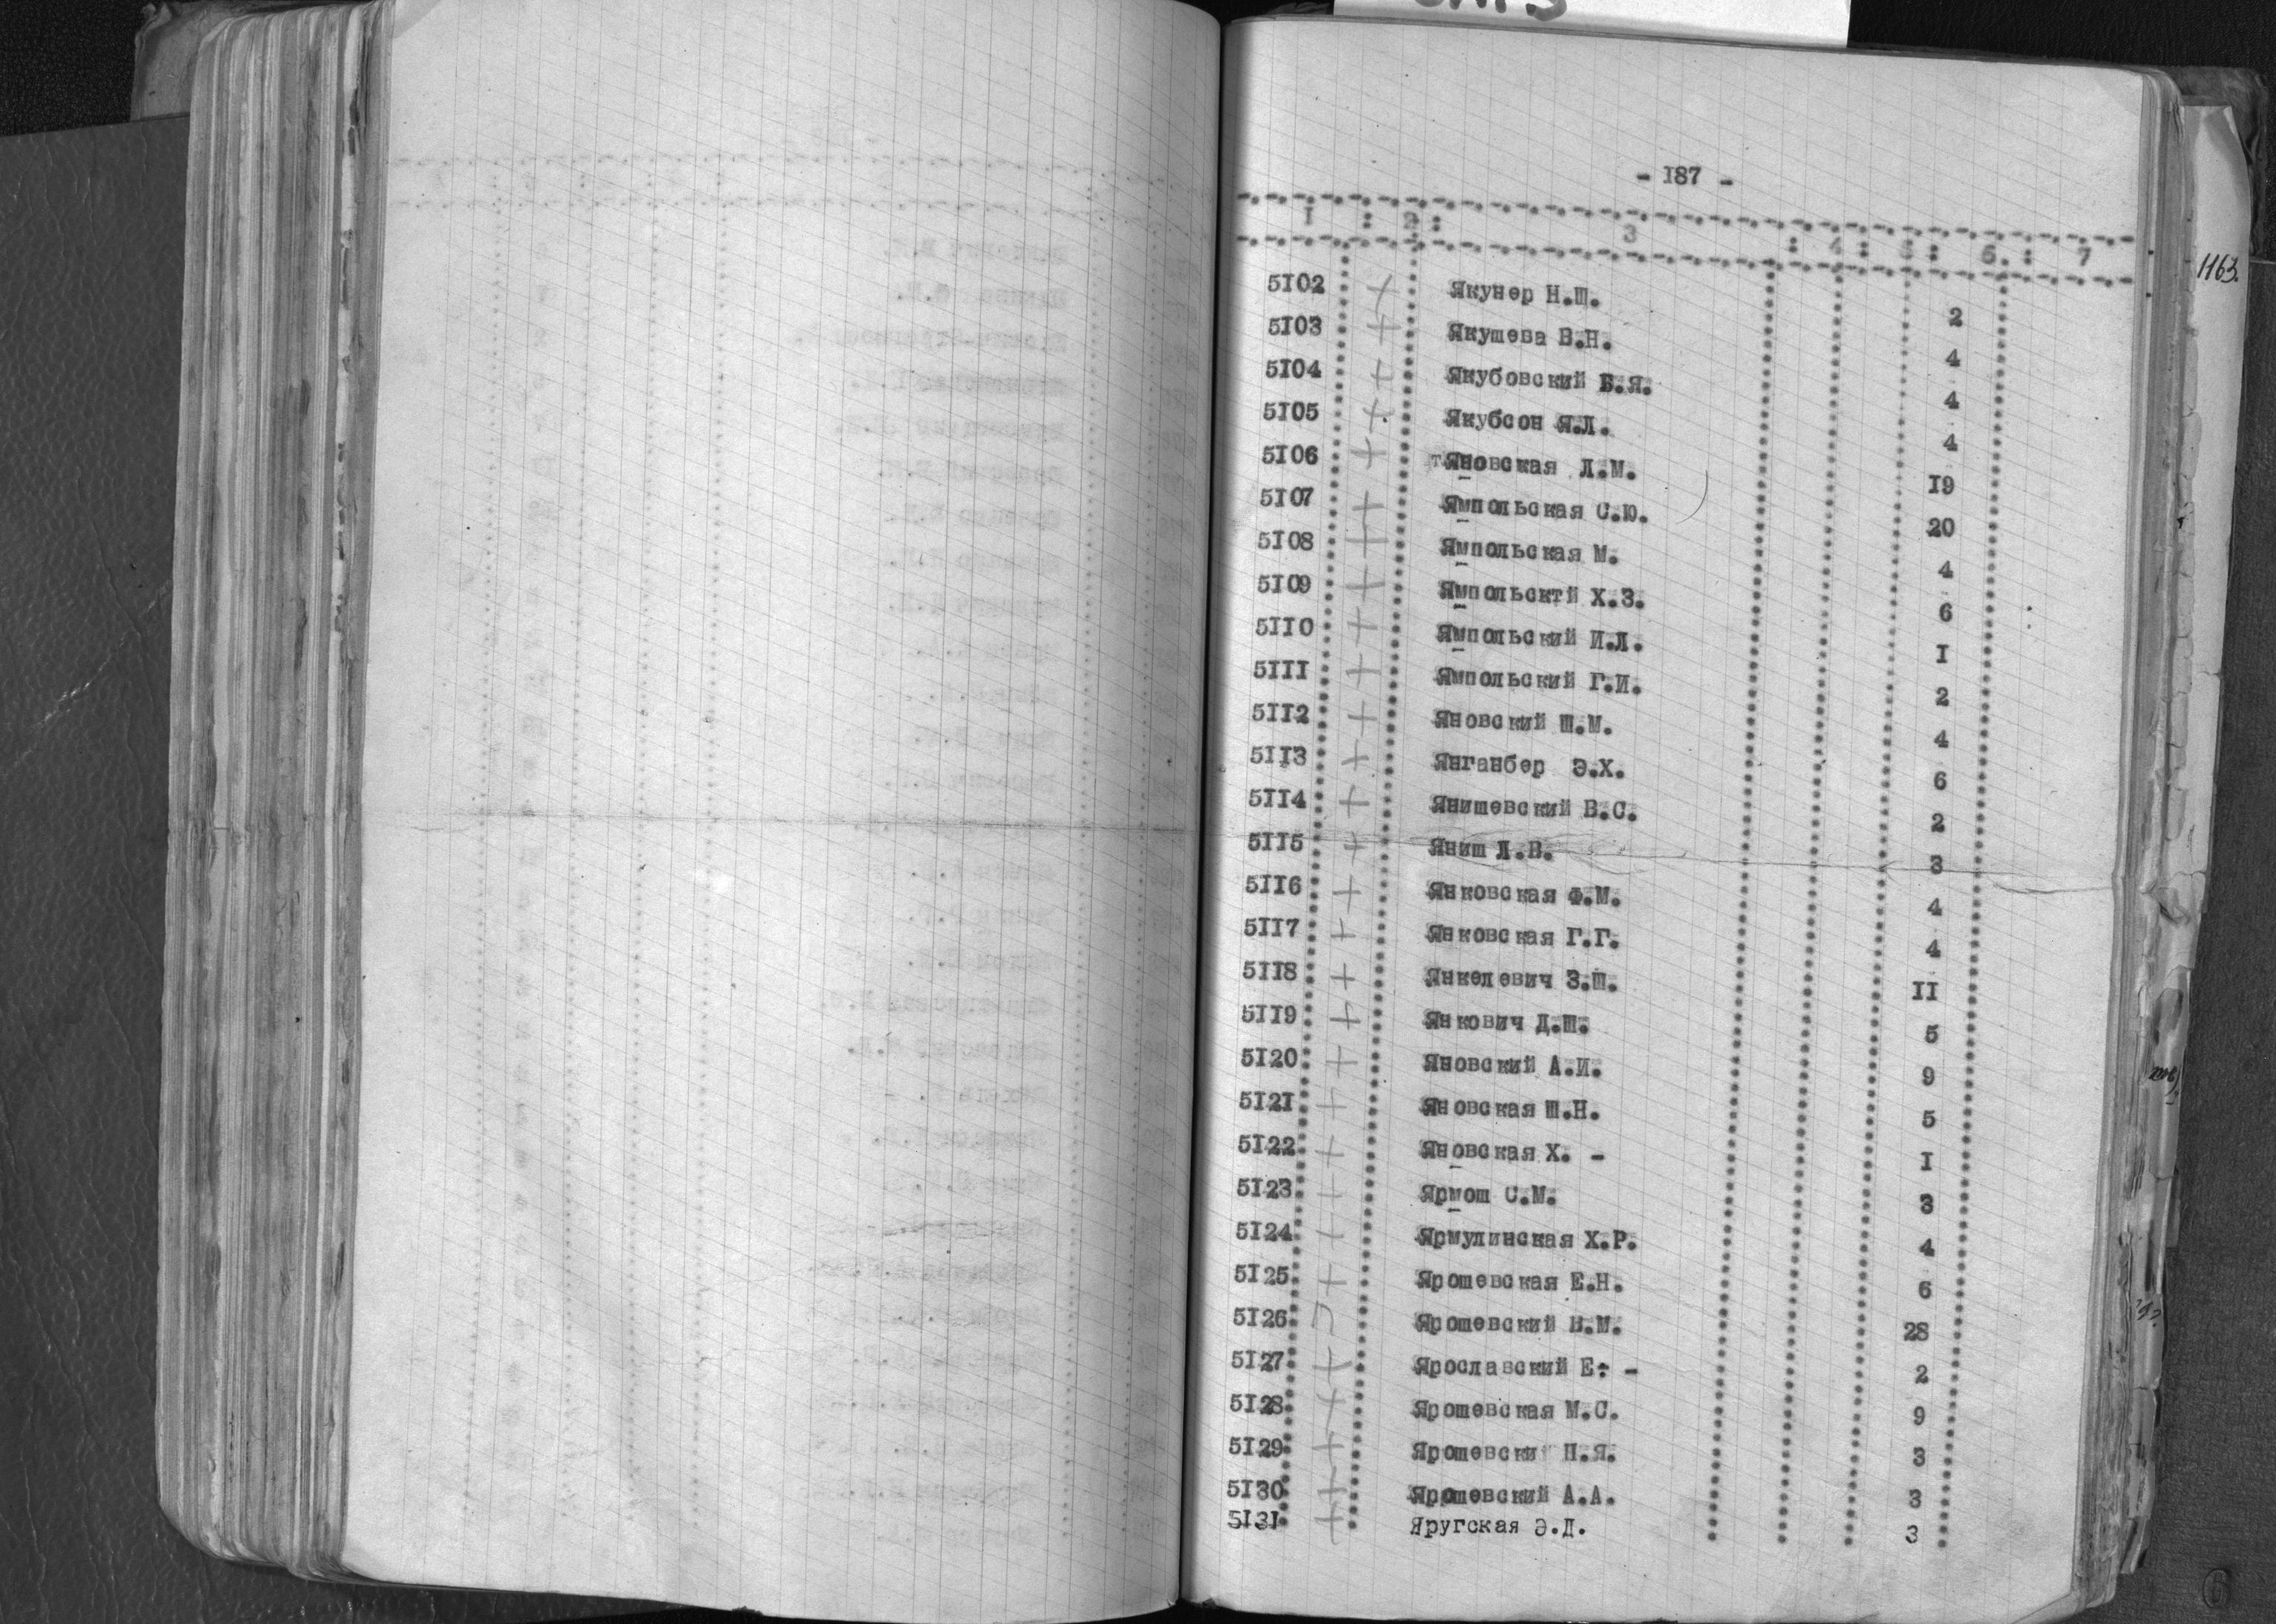 - I87 -
I : 2 : 3 : 4 : 5 : 6. : 7
1163.
5I02 + Якунер Н.Ш. 2
5I03 + Якушева В.Н. 4
5I04 + Якубовский Б.Я. 4
5I05 + Якубсон Я.Л. 4
5I06 + Яновская Л.М. I9
5I07 + Ямпольская С.Ю. 20
5I08 + Ямпольская М. 4
5I09 + Ямпольсктй Х.З. 6
5II0 + Ямпольский И.Л. I
5III + Ямпольский Г.И. 2
5II2 + Яновский Ш.М. 4
5II3 + Янганбер Э.Х. 6
5II4 + Янишевский В.С. 2
5II5 + Яниш Л.В. 3
5II6 + Янковская Ф.М. 4
5II7 + Янковская Г.Г. 4
5II8 + Янкелевич З.Ш. II
5II9 + Янкович Д.Ш. 5
5I20 + Яновский А.И. 9
5I21 + Яновская Ш.Н. 5
5I22 + Яновская Х. - I
5I23 + Ярмош С.М. 3
5I24 + Ярмулинская Х.Р. 4
5I25 + Ярошевская Е.Н. 6
5I26 Ярошевский В.М. 28
5I27 + Ярославский Е. - 2
5I28 + Ярошевская М.С. 9
5I29 + Ярошевски Н.Я. 3
5I30 + Ярошевский А.А. 3
5I3I + Яругская Э.Д. 3